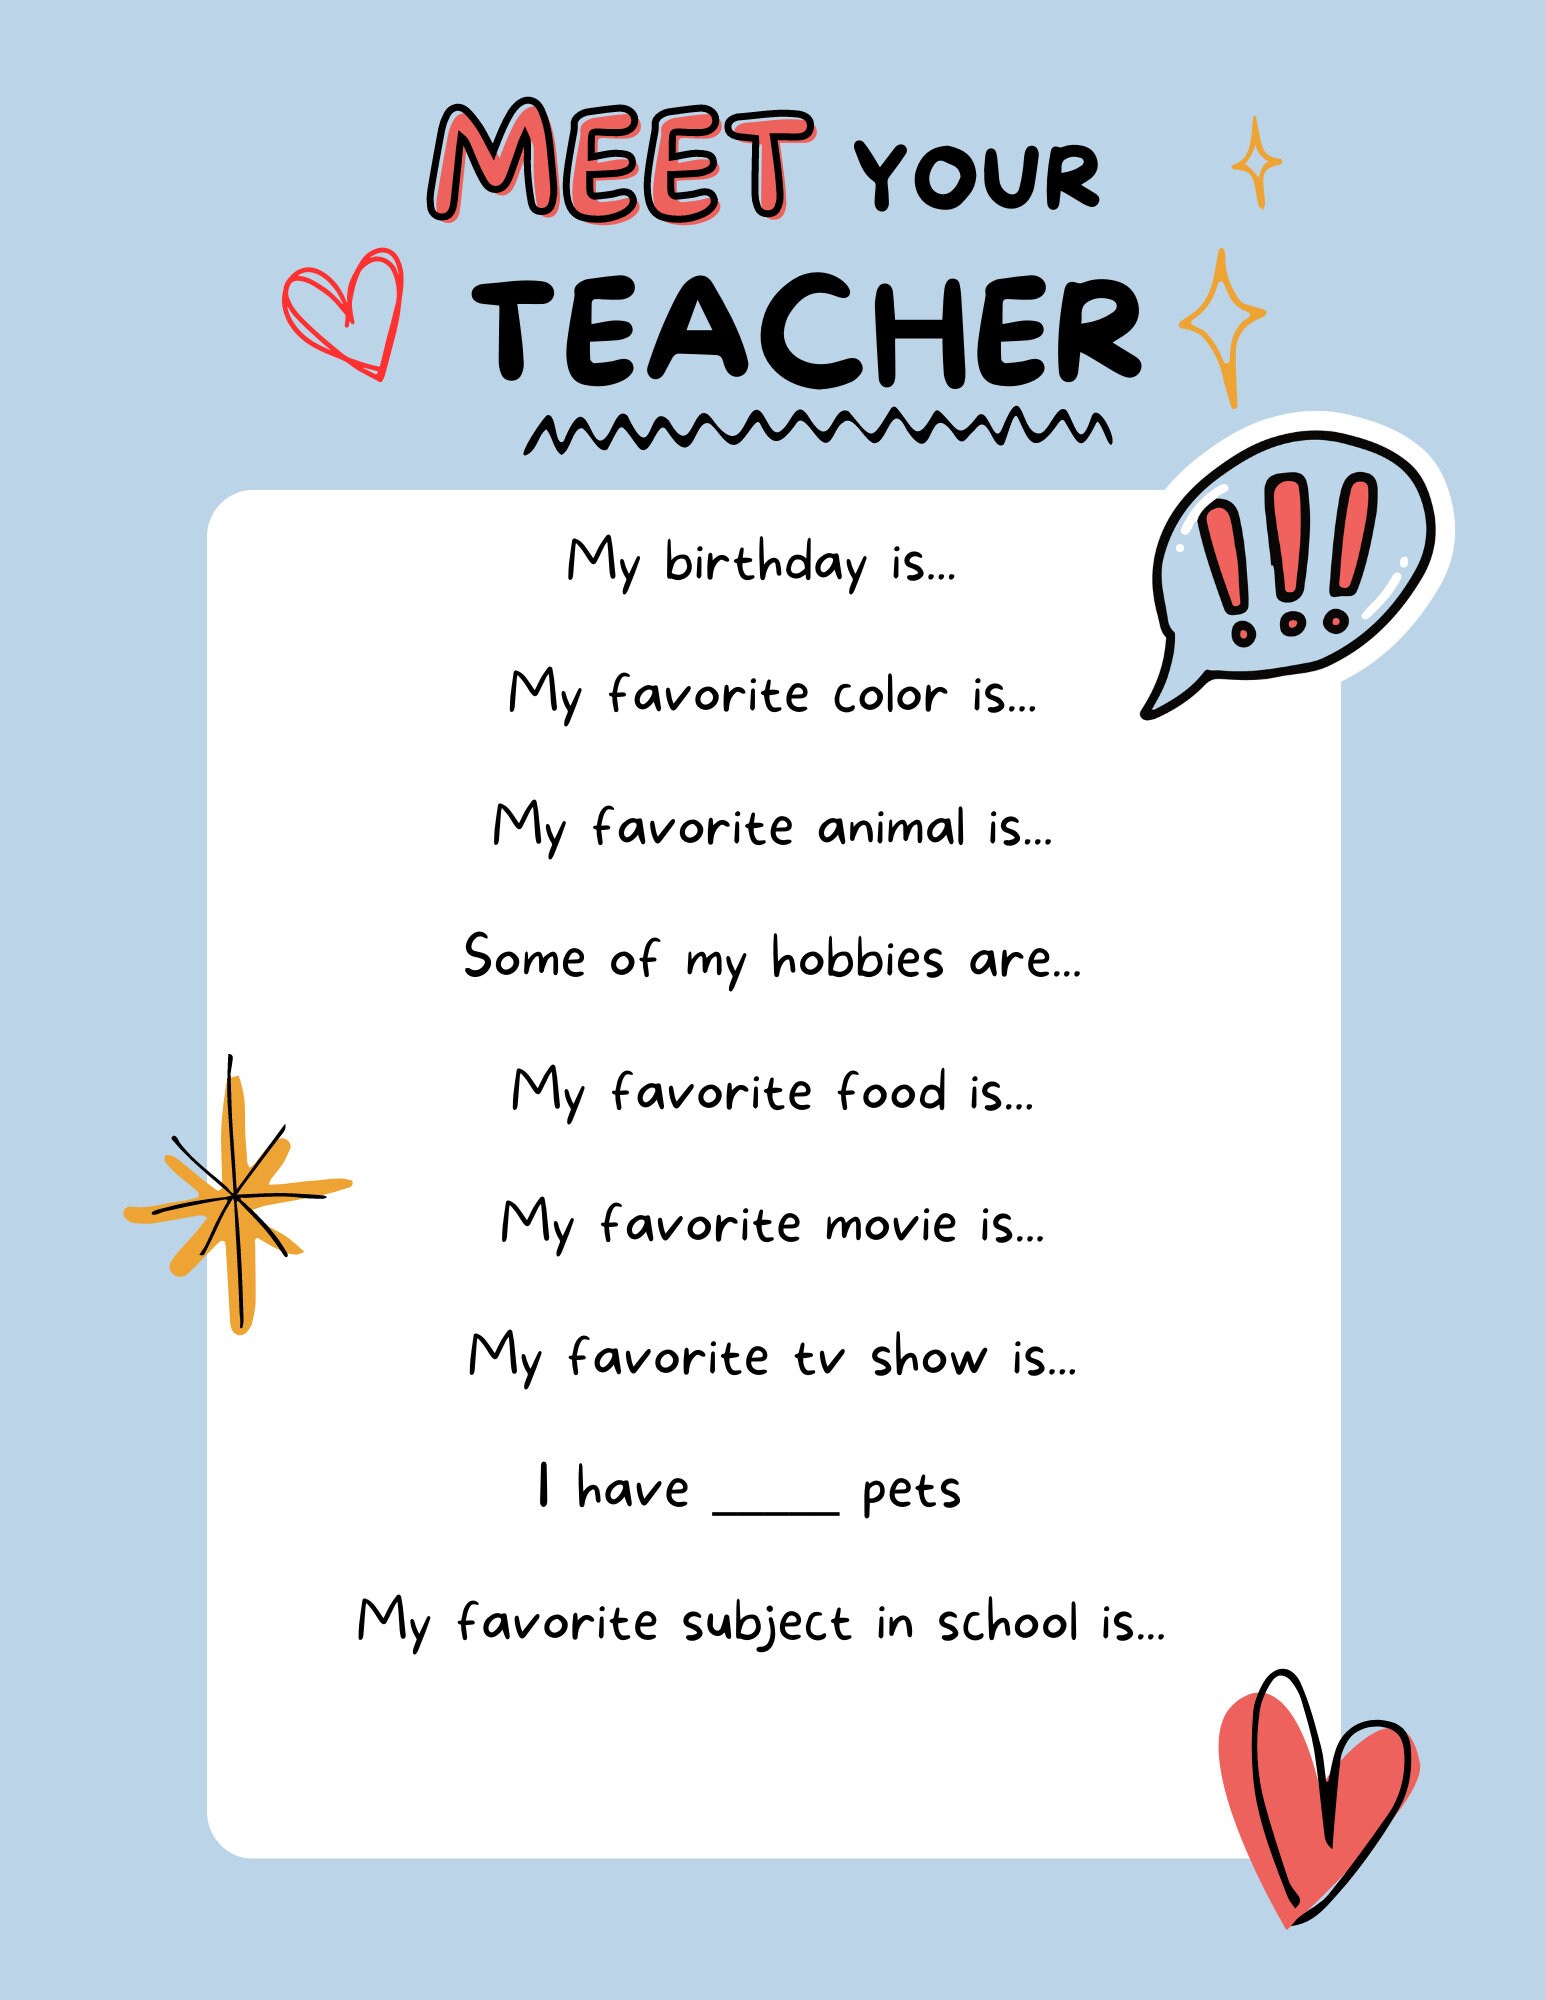 MEET YOUR
TEACHER
!!!
My birthday is...
My favorite color is...
My favorite animal is...
Some of my hobbies are...
My favorite food is...
My favorite movie is...
My favorite tv show is...
I have _____ pets
My favorite subject in school is...